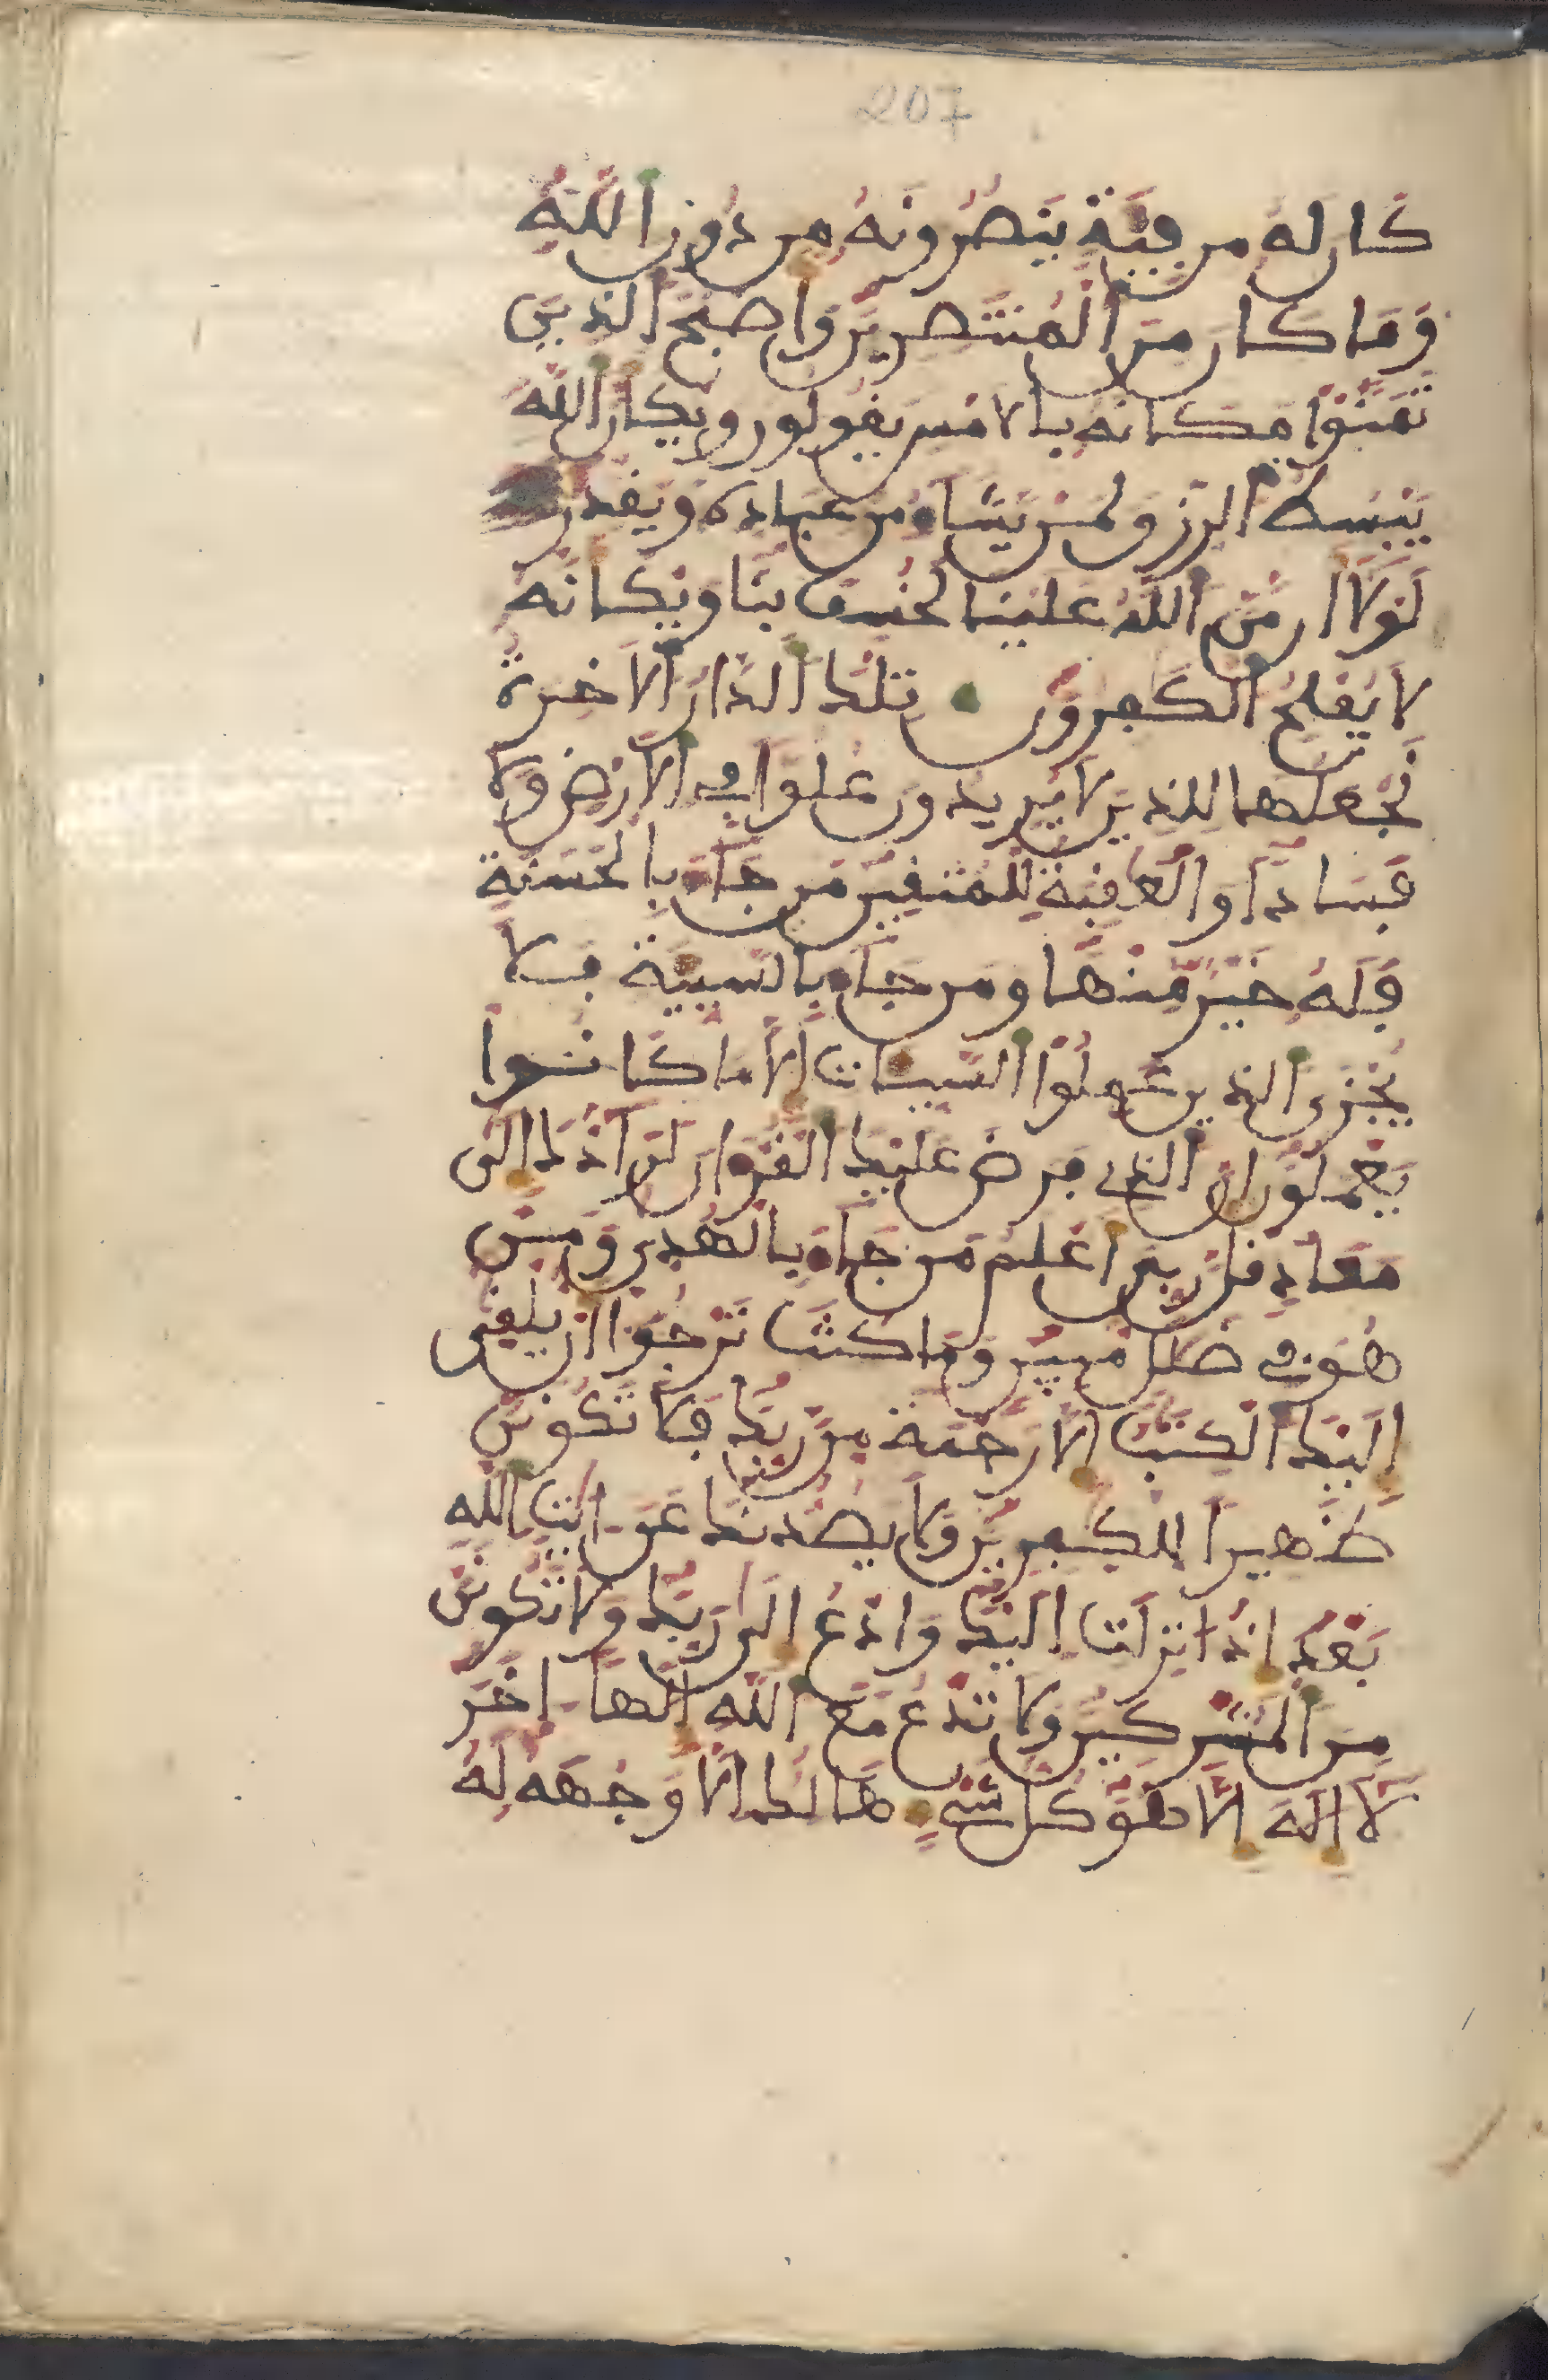 207
كَانَ لَهُ مِن فِيَةٍ يَنصُرُونَهُ مِن دُونِ اللَّهِ
وَمَا كَانَ مِنَ الْمُنتَصِرِينَ وَأَصْبَحَ الذِينَ
تَمَنَّوْا مَكَانَهُ بِالَامْسِ يَقُولُونَ وَيْكَأَنَّ اللَّهَ
يَبْسُطُ الرِّزْقَ لِمَنْ يَّشَاءُ مِنْ عِبَادِهِ وَيَقْدِرُ
لَوْلَا أَن مَّنَّ اللَّهُ عَلَيْنَا لَخُسِفَ بِنَا وَيْكَأَنَّهُ
لَا يُفْلِحُ الْكَفِرُونَ تِلْكَ الدَّارُ الَاخِرَةُ
نَجْعَلُهَا لِلذِينَ لَا يُرِيدُونَ عُلُوًّا فِي الَارْضِ وَلَا
فَسَادًا وَالْعَقِبَةُ لِلْمُتَّقِينَ مَن جَاءَ بِالْحَسَنَةِ
فَلَهُ خَيْرٌ مِّنْهَا وَمَن جَاءَ بِالسَّيِّيَةِ فَلَا
يُجْزَى الذِينَ عَمِلُوا السَّيِّـَاتِ إِلَّا مَا كَانُوا
يَعْمَلُونَ إِنَّ الذِي فَرَضَ عَلَيْكَ الْقُرْءَانَ لَرَادُّكَ إِلَى
مَعَادٍ قُل رَّبِّيَ أَعْلَمُ مَن جَاءَ بِالْهُدَى وَمَنْ
هُوَ فِي ضَلَلٍ مُّبِينٍ وَمَا كُنتَ تَرْجُوا أَنْ يُّلْقَى
إِلَيْكَ الْكِتَبُ إِلَّا رَحْمَةً مِّن رَّبِّكَ فَلَا تَكُونَنَّ
ظَهِيرًا لِّلْكَفِرِينَ وَلَا يَصُدُّنَّكَ عَنَ ايَتِ اللَّهِ
بَعْدَ إِذُ انزِلَتِ الَيْكَ وَادْعُ إِلَى رَبِّكَ وَلَا تَكُونَنَّ
مِنَ الْمُشْرِكِينَ وَلَا تَدْعُ مَعَ اللَّهِ إِلَهًا اخَرَ
لَا إِلَهَ إِلَّا هُوَ كُلُّ شَيْءٍ هَالِكٌ إِلَّا وَجْهَهُ لَهُ